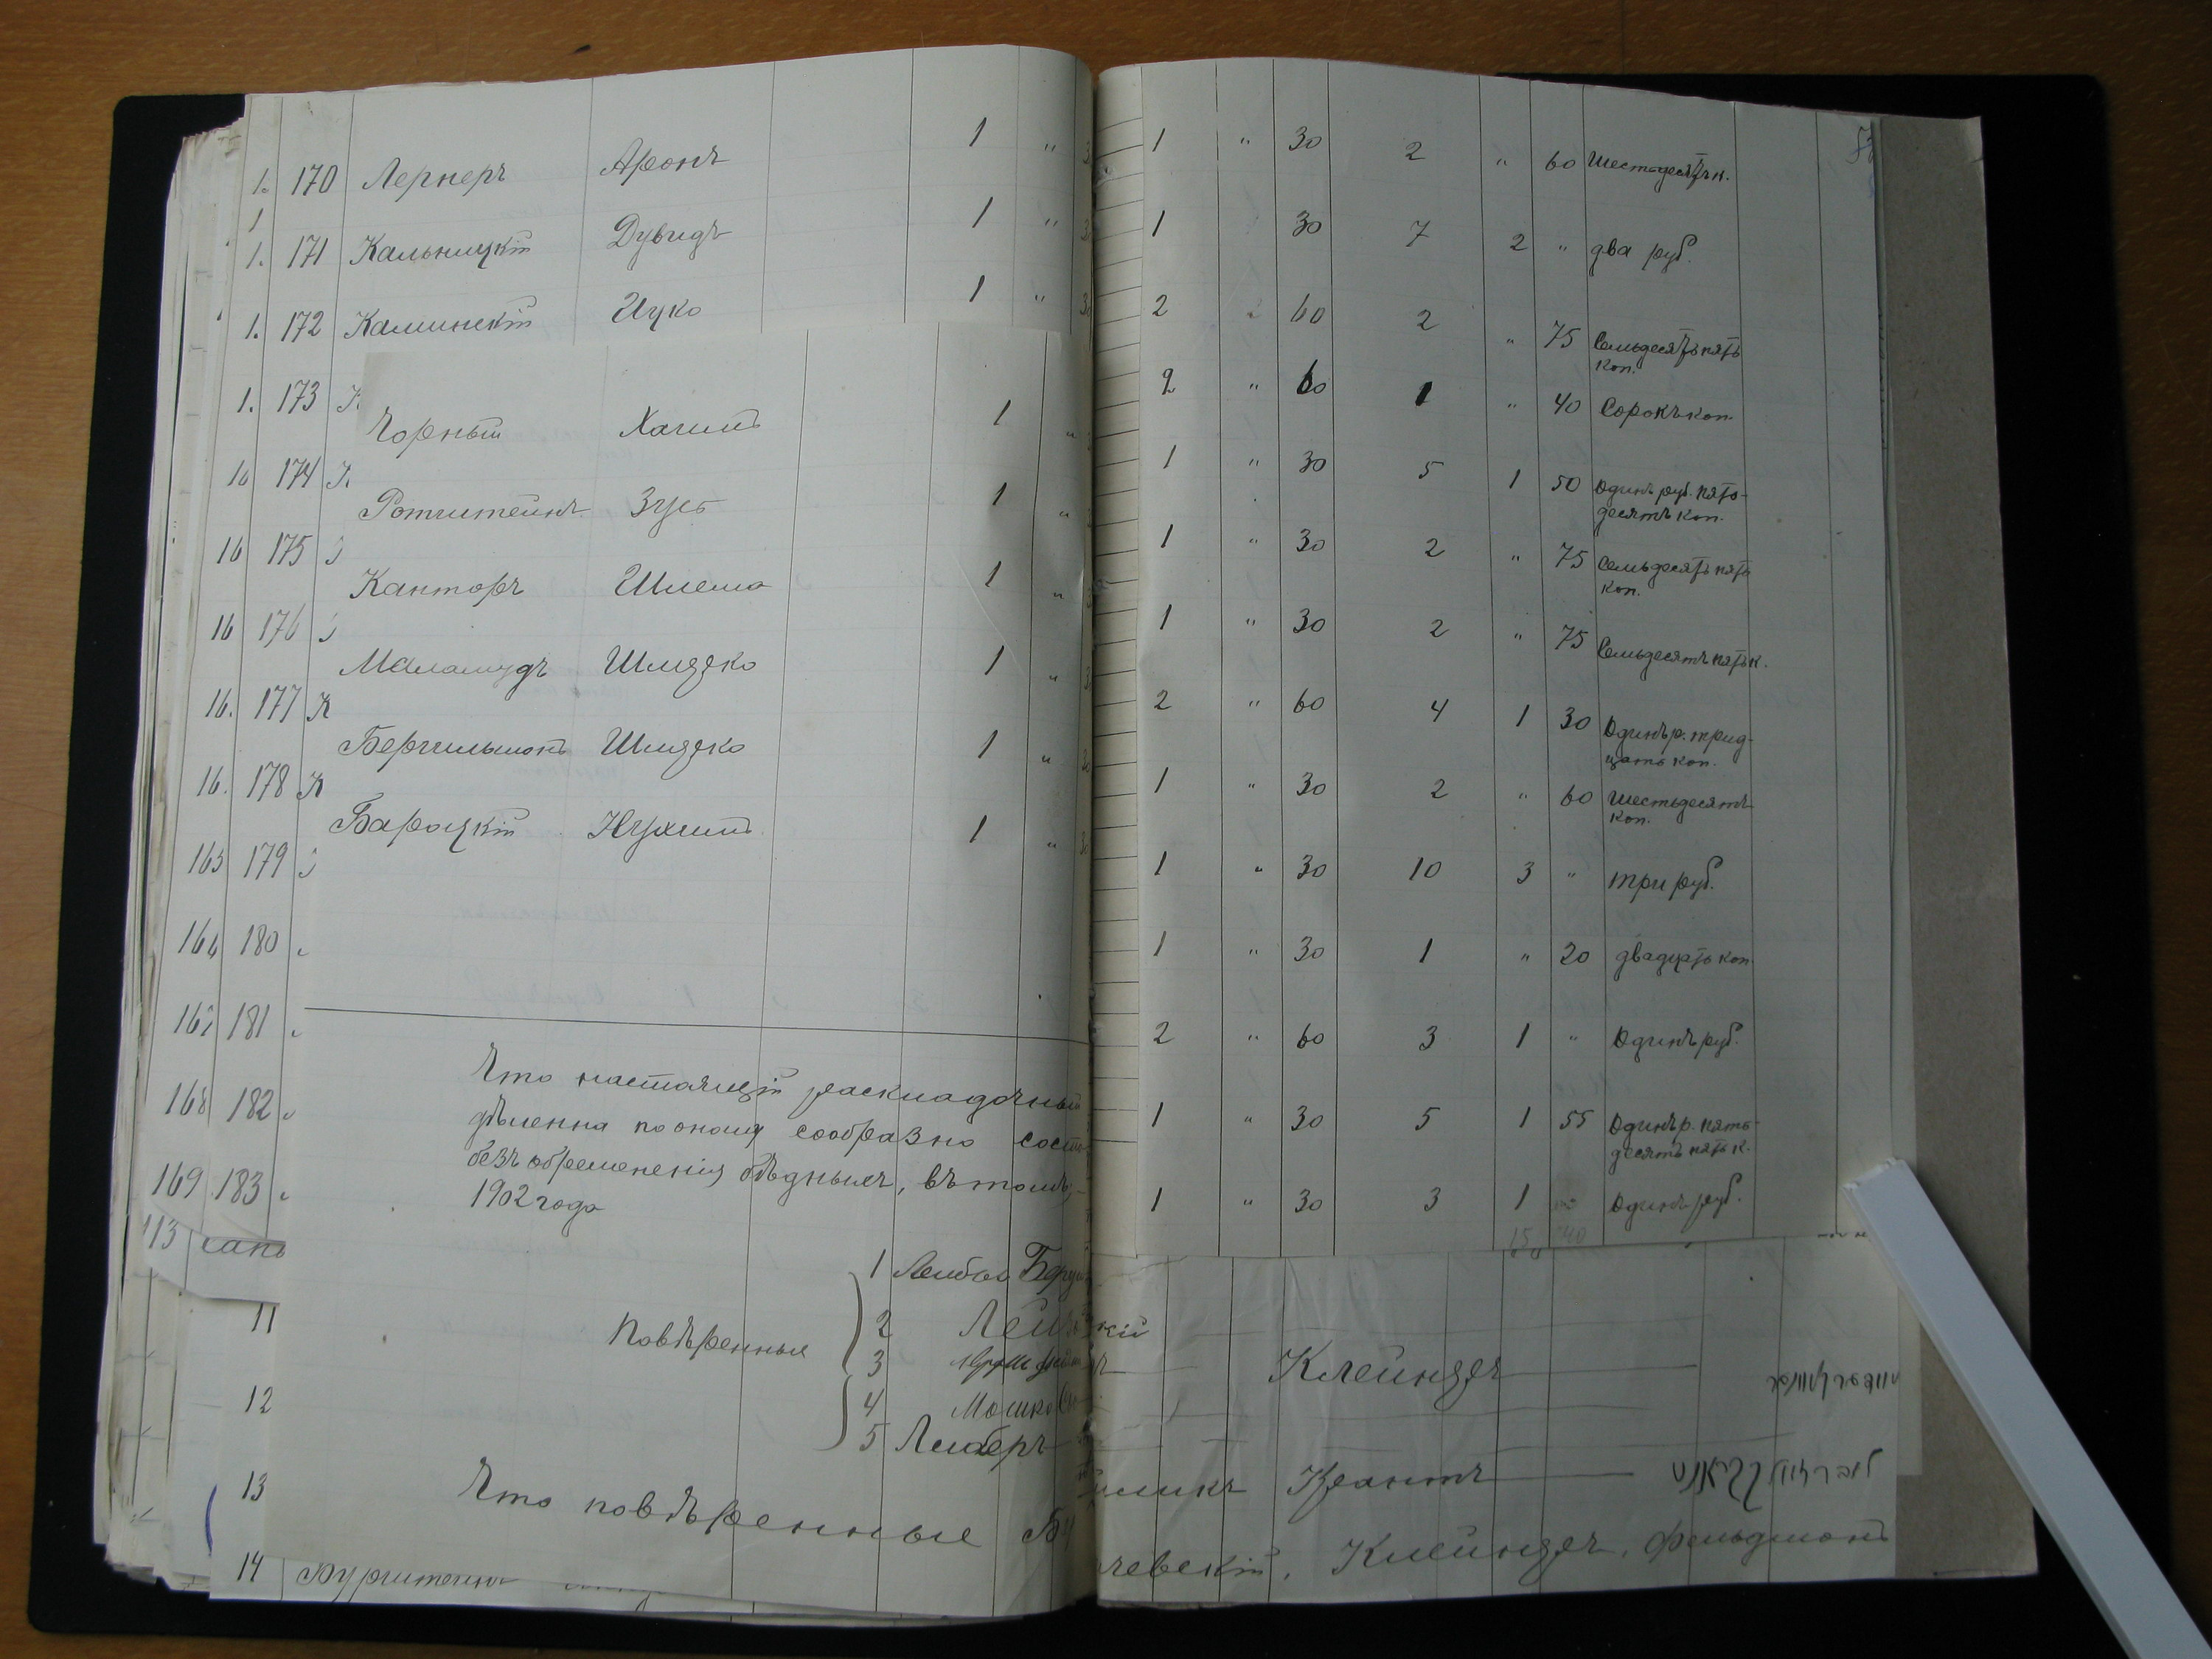 1. 170 Лернеръ Аронъ 1 "
1
1. 171 Кальницкій Дувидъ 1 "
1. 172 Каминскій Ицко 1 "
1. 173
Чорный Хаимъ 1 "
16 174
Ротштейнъ Зусь 1 "
16 175
Канторъ Шлема 1 "
16 176
Маламудъ Шмерко 1 "
16. 177 К
Бергильманъ Шмерко 1 "
16. 178 К
Бароцкій Нухимъ 1 "
163 179
164 180
167 181
168 182
169 183
113
Что настоящій раскладочный
дѣленна по оному сообразно сост
безъ обремененія бѣдныхъ, въ томъ,
1902 года
Повѣренные
1 Лейбъ
2
3
4 Мошко
5
11
12
13
14
Что повѣренные
1 " 30 2 " 60 Шестьдесятъ к.
1 30 7 2 " два руб.
2 60 2 " 75 Семьдесять пять
коп.
2 " 60 1 " 40 Сорокъ коп.
1 " 30 5 1 50 Одинъ руб. пять-
десятъ коп.
1 " 30 2 " 75 Семьдесять пять
коп.
1 " 30 2 " 75 Семьдесятъ пять к.
2 " 60 4 1 30 Одинъ р. трид-
цать коп.
1 " 30 2 " 60 Шестьдесятъ
коп.
1 " 30 10 3 " три руб.
1 " 30 1 " 20 двадцать коп.
2 " 60 3 1 " Одинъ руб.
1 " 30 5 1 55 Одинъ р. пять-
десять пять к.
1 " 30 3 1 Одинъ руб.
15 40
кій
Клейнеръ
Крантъ
чевскій, Клейнеръ, Фельдманъ